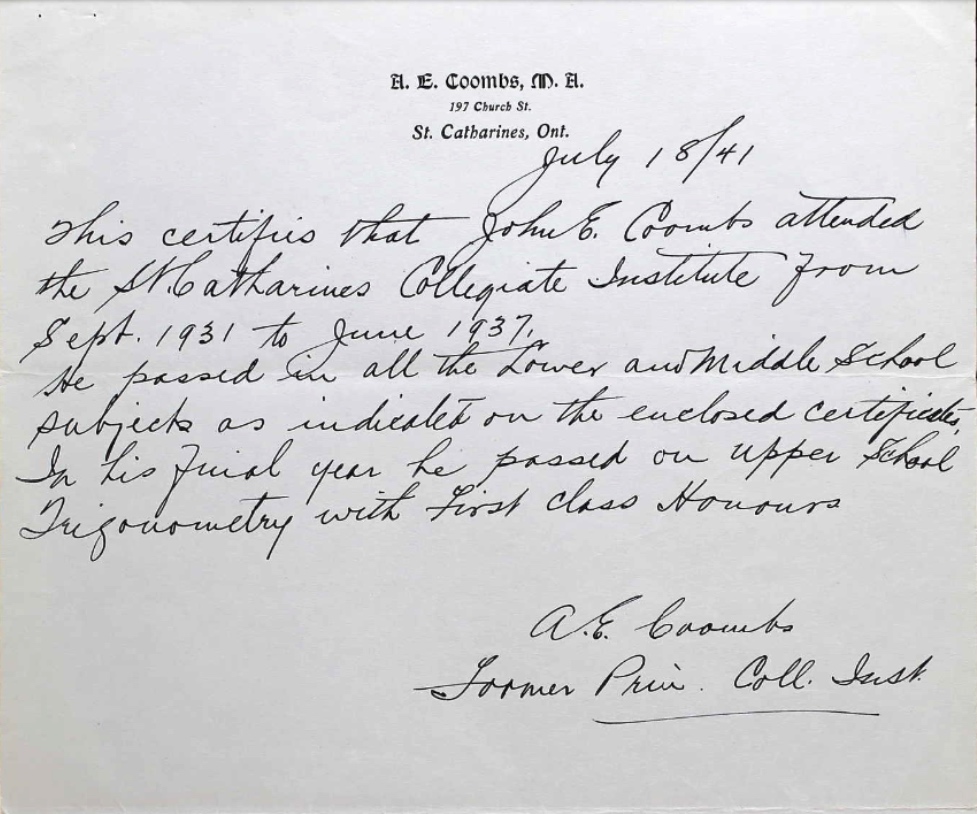 A. E. Coombs, M. A.
197 Church St.
St. Catharines, Ont.
July 18/41
This certifies that John E. Coombs attended
the St. Catharines Collegiate Institute from
Sept. 1931 to June 1937.
He passed in all the Lower and Middle School
subjects as indicated on the enclosed certificates.
In his final year he passed on Upper School
Trigonometry with First Class Honours
A. E. Coombs
Former Prin. Coll. Inst.